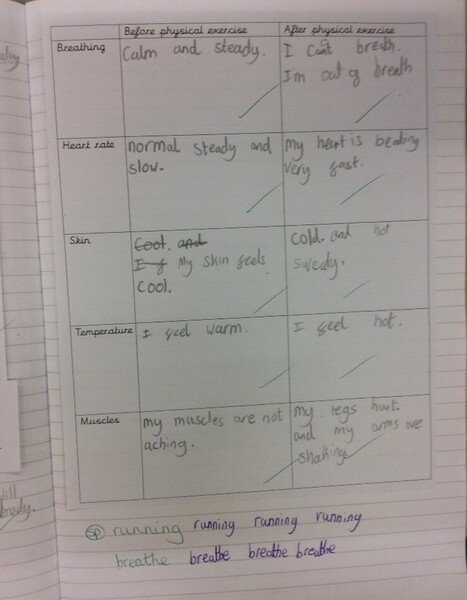 Before physical exercise
After physical exercise
Breathing
Calm and steady.
I Can't breath.
I'm out of breath
Heart rate
normal steady and
slow.
my heart is beating
very fast.
Skin
Cool, and
I f My skin feels
Cool.
cold. and not
sweaty.
Temperature
I feel warm.
I feel hot.
Muscles
my muscles are not
aching.
my legs hurt.
and my arms are
shaking
sp running running running running
breathe breathe breathe breathe